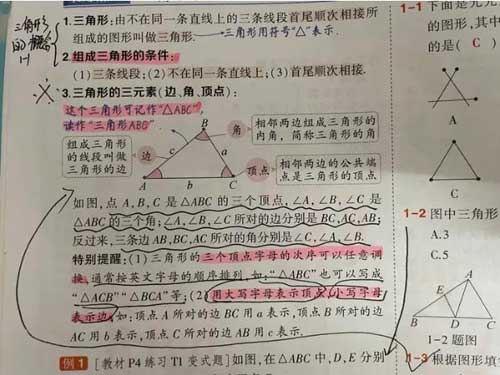 三角形
的概念
1-1
1.三角形:由不在同一条直线上的三条线段首尾顺次相接所
组成的图形叫做三角形.
三角形用符号“△”表示.
2.组成三角形的条件:
(1)三条线段;(2)不在同一条直线上;(3)首尾顺次相接.
3.三角形的三元素(边、角、顶点):
这个三角形可记作“△ABC”,
读作“三角形ABC”
组成三角形
的线段叫做
三角形的边
边
角
相邻两边组成三角形的
内角,简称三角形的角
顶点
相邻两边的公共端
点是三角形的顶点
B
c
a
A
b
C
如图,点A,B,C是△ABC的三个顶点,∠A,∠B,∠C是
△ABC的三个角;∠A,∠B,∠C所对的边分别是BC,AC,AB;
反过来,三条边AB,BC,AC所对的角分别是∠C,∠A,∠B.
特别提醒:(1)三角形的三个顶点字母的次序可以任意调
换,通常按英文字母的顺序排列,如:“△ABC”也可以写成
“△ACB”“△BCA”等;(2)用大写字母表示顶点,小写字母
表示边,如:顶点A所对的边BC用a表示,顶点B所对的边
AC用b表示,顶点C所对的边AB用c表示.
例1 [教材P4练习T1变式题]如图,在△ABC中,D,E分别
1-1 下面是
的图形,其中
的是(C)
A
C
1-2 图中三角形
A.3
C.5
A
E
B
D
C
1-2题图
1-3 根据图形填